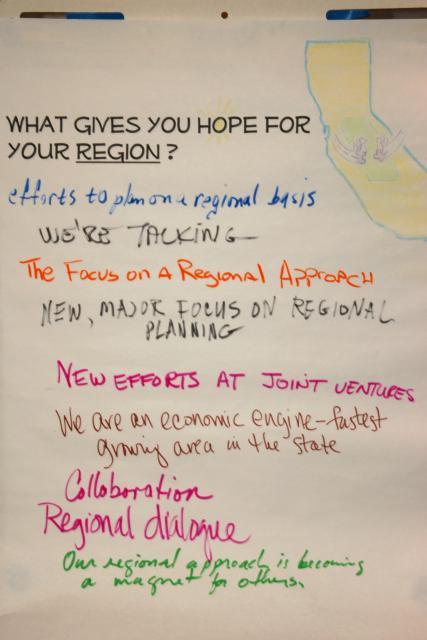 WHAT GIVES YOU HOPE FOR
YOUR REGION?
efforts to plan on a regional basis
WE'RE TALKING
The Focus on a Regional Approach
NEW, MAJOR FOCUS ON REGIONAL
PLANNING
NEW EFFORTS AT JOINT VENTURES
We are an economic engine - fastest
growing area in the state
Collaboration
Regional dialogue
Our regional approach is becoming
a magnet for others.